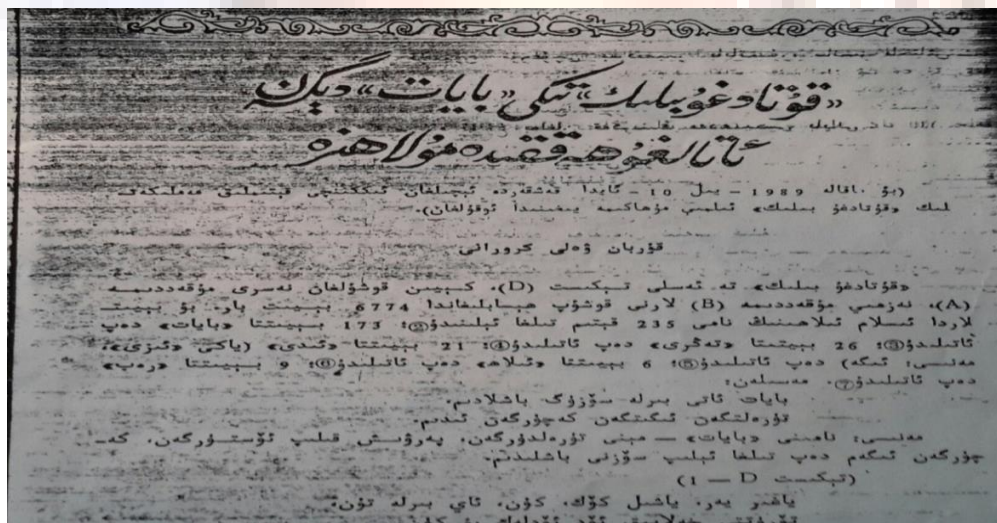 «قۇتادغۇبىلىك» تىكى «بايات» دېگەن
ئاتالغۇ ھەققىدە مۇلاھىزە
(بۇ ماقالە 1989 – يىل 10 – ئايدا قەشقەردە ئېچىلغان ئىككىنچى قېتىملىق مەملىكەت
لىك «قۇتادغۇ بىلىك» ئىلمىي مۇھاكىمە يىغىنىدا ئوقۇلغان).
قۇربان ۋەلى كرورانى
«قۇتادغۇ بىلىك» تە ئەسلى تېكىست (D)، كېيىن قوشۇلغان نەسرى مۇقەددىمە
(A)، نەزمىي مۇقەددىمە (B) لارنى قوشۇپ ھېسابلىغاندا 6774 بېيىت بار. بۇ بېيىت
لاردا ئىسلام ئىلاھىنىڭ نامى 235 قېتىم تىلغا ئېلىنىدۇ: 173 بېيىتتا «بايات» دەپ
ئاتىلىدۇ③: 26 بېيىتتا «تەڭرى» دەپ ئاتىلىدۇ④: 21 بېيىتتا «ئىدى» (ياكى «ئىزى»،
مەنىسى: ئىگە) دەپ ئاتىلىدۇ⑤: 6 بېيىتتا «ئىلاھ» دەپ ئاتىلىدۇ⑥: 9 بېيىتتا «رەب»
دەپ ئاتىلىدۇ⑦. مەسىلەن:
بايات ئاتى بىرلە سۆزۈگ باشلادىم.
تۆرەلتگەن ئىگىتگەن كەچۈرگەن ئىدىم.
مەنىسى: نامىنى «بايات» — مېنى تۆرەلدۈرگەن، پەرۋىش قىلىپ ئۆستۈرگەن، كە-
چۈرگەن ئىگەم دەپ تىلغا ئېلىپ سۆزنى باشلىدىم.
(تېكىست D — 1)
ياغىز يەر، ياشىل كۆك، كۈن، ئاي بىرلە تۈن،